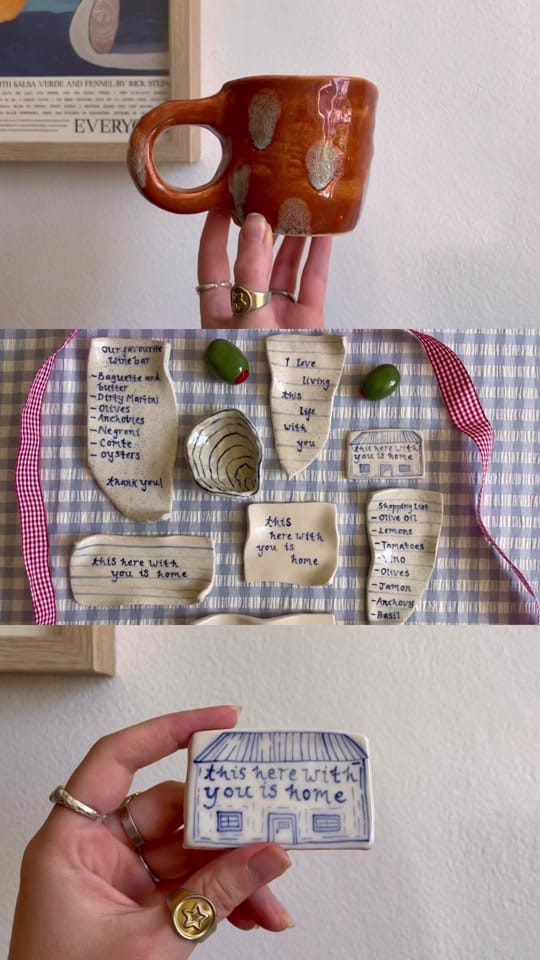 ITH SALSA VERDE AND FENNEL BY RICK STEIN
EVERYO
Our favourite
wine bar
- Baguette and
butter
- Dirty Martini
- Olives
- Anchovies
- Negroni
- Comte
- oysters
thank you!
I love
living
this
life
with
you
this here with
you is home
this here with
you is home
this
here with
you is
home
Shopping List
- Olive oil
- Lemons
- Tomatoes
- Vino
- Olives
- Jamon
- Anchovy
- Basil
this here with
you is home